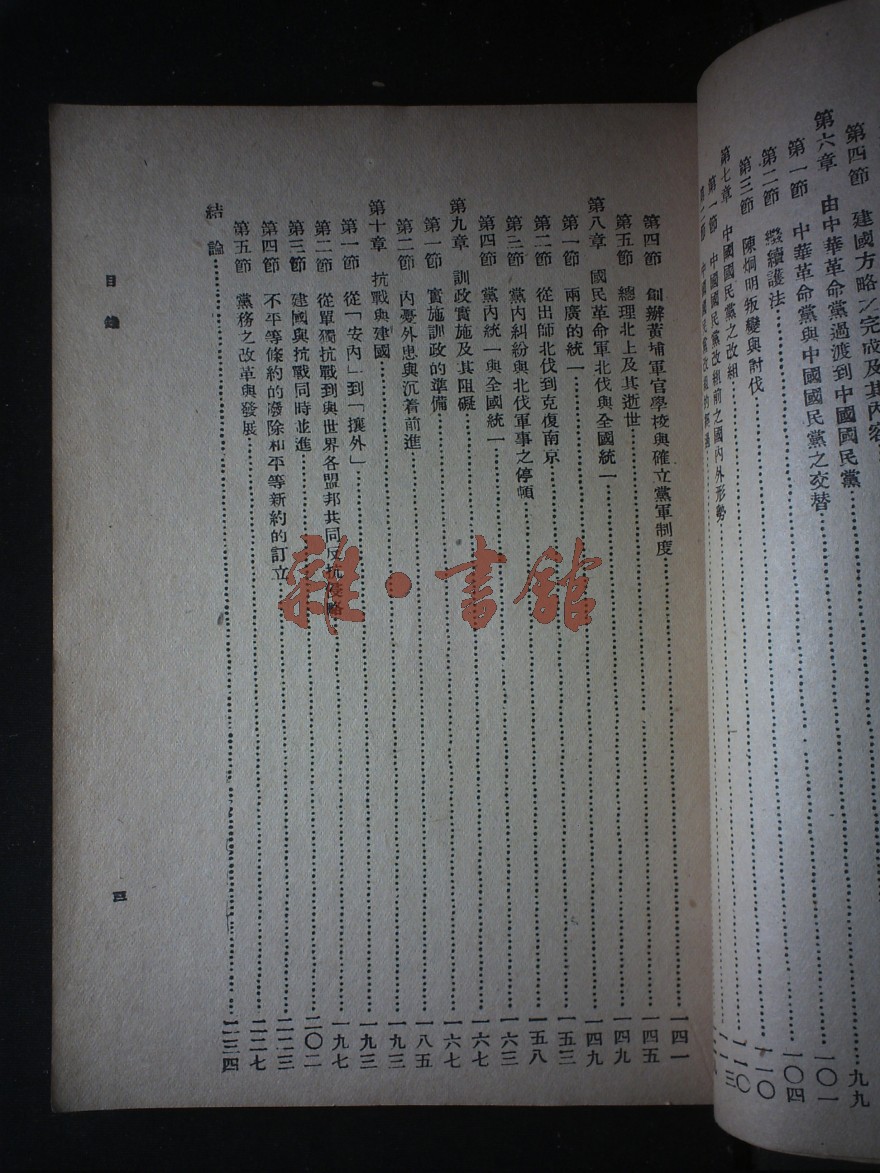 第四節 建國方略之完成及其內容……九九
第六章 由中華革命黨過渡到中國國民黨……一〇一
第一節 中華革命黨與中國國民黨之交替……一〇四
第二節 繼續護法……一一〇
第三節 陳烱明叛變與討伐……
第七章 中國國民黨之改組……
第一節 中國國民黨改組前之國內外形勢……
第四節 創辦黃埔軍官學校與確立黨軍制度……一四一
第五節 總理北上及其逝世……一四五
第八章 國民革命軍北伐與全國統一……一四九
第一節 兩廣的統一……一四九
第二節 從出師北伐到克復南京……一五三
第三節 黨內糾紛與北伐軍事之停頓……一五八
第四節 黨內統一與全國統一……一六三
第九章 訓政實施及其阻礙……一六七
第一節 實施訓政的準備……一六七
第二節 內憂外患與沉着前進……一八五
第十章 抗戰與建國……一九三
第一節 從「安內」到「攘外」……一九三
第二節 從單獨抗戰到與世界各盟邦共同反抗侵略……一九七
第三節 建國與抗戰同時並進……二〇二
第四節 不平等條約的廢除和平等新約的訂立……二二三
第五節 黨務之改革與發展……二二七
結論……二三四
目錄
三
雜·書館